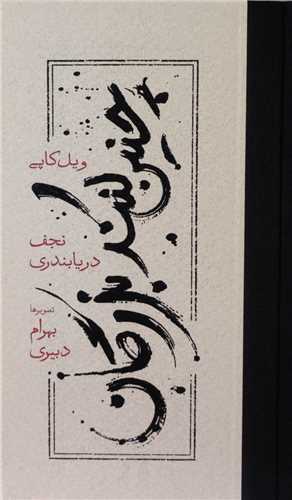 چنین کنند بزرگان
ویل کاپی
نجف
دریابندری
تصویرها
بهرام
دبیری